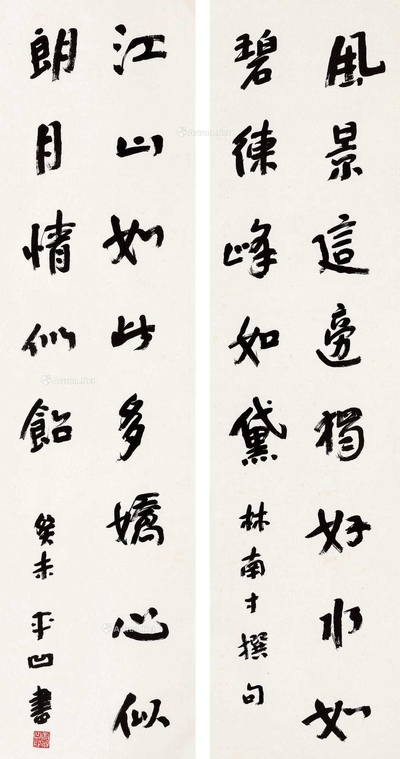 風景這旁獨好水如
碧練峰如黛
林南才撰句
江山如此多嬌心似
朗月情似飴
癸未 平凹書